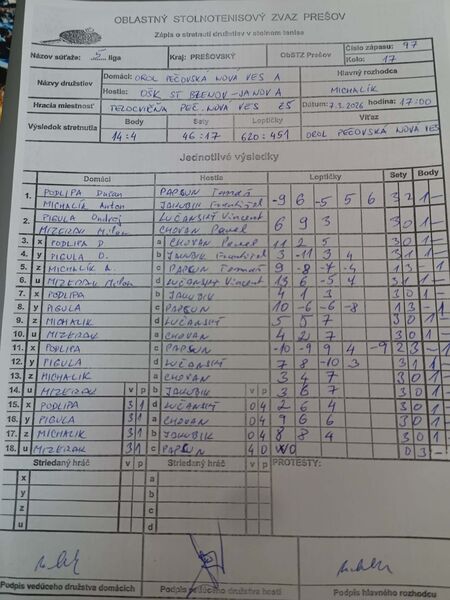 OBLASTNÝ STOLNOTENISOVÝ ZVÄZ PREŠOV
Zápis o stretnutí družstiev v stolnom tenise
Názov súťaže: 5. liga Kraj: PREŠOVSKÝ ObSTZ Prešov Číslo zápasu: 97
Kolo: 17
Názvy družstiev Domáci: OROL PEČOVSKÁ NOVÁ VES A Hlavný rozhodca
Hostia: OŠK ST BREZNOV-JANOV A MICHALÍK
Hracia miestnosť TELOCVIČŇA PEČ. NOVÁ VES ZŠ Dátum: 7.3.2026 hodina: 17:00
Výsledok stretnutia Body Sety Loptičky Víťaz
14:4 46:17 620:451 OROL PEČOVSKÁ NOVÁ VES
Jednotlivé výsledky
Domáci Hostia Loptičky Sety Body
1. PODLIPA Dušan PAPCUN Tomáš -9 6 -5 5 6 3 2 1 -
MICHALÍK Anton JAKUBIK František
2. PIGULA Ondrej LUČANSKÝ Vincent 6 9 3 3 0 1 -
MIZERÁK Milan CHOVAN Pavel
3. x PODLIPA D. a CHOVAN Pavel 11 2 5 3 0 1 -
4. y PIGULA O. b JAKUBIK František 3 -11 3 4 3 1 1 -
5. z MICHALÍK A. c PAPCUN Tomáš 9 -8 -7 -4 1 3 - 1
6. u MIZERÁK Milan d LUČANSKÝ Vincent 13 6 -5 4 3 1 1 -
7. x PODLIPA b JAKUBIK 4 1 3 3 0 1 -
8. y PIGULA c PAPCUN 10 -6 -6 -8 1 3 - 1
9. z MICHALÍK d LUČANSKÝ 5 5 7 3 0 1 -
10. u MIZERÁK a CHOVAN 4 2 7 3 0 1 -
11. x PODLIPA c PAPCUN -10 -9 9 4 -9 2 3 - 1
12. y PIGULA d LUČANSKÝ 7 8 -10 3 3 1 1 -
13. z MICHALÍK a CHOVAN 3 4 7 3 0 1 -
14. u MIZERÁK v p b JAKUBIK v p 3 6 7 3 0 1 -
15. x PODLIPA 3 1 d LUČANSKÝ 0 4 2 6 4 3 0 1 -
16. y PIGULA 3 1 a CHOVAN 0 4 9 6 6 3 0 1 -
17. z MICHALÍK 3 1 b JAKUBIK 0 4 8 8 4 3 0 1 -
18. u MIZERÁK 3 1 c PAPCUN 4 0 WO 0 3 -
Striedaný hráč v p Striedaný hráč v p PROTESTY:
x a
y b
z c
u d
Podpis vedúceho družstva domácich Podpis vedúceho družstva hostí Podpis hlavného rozhodcu